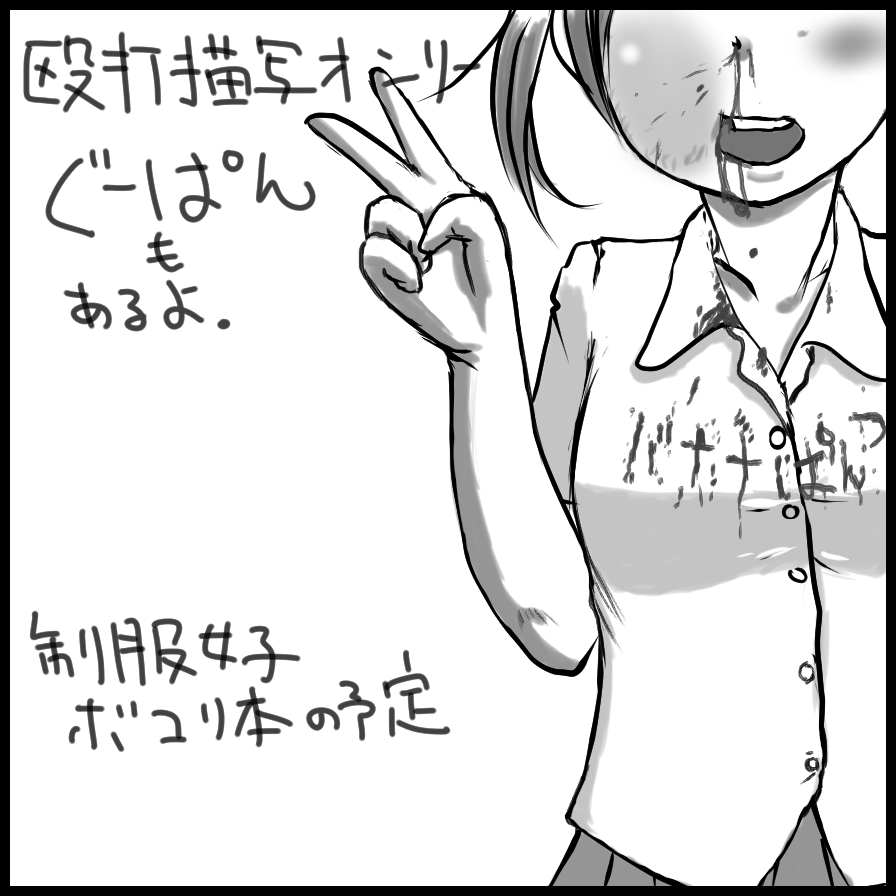 殴打描写オンリー
ぐーぱん
も
あるよ.
バナナぱんつ
制服女子
ボコリ本の予定